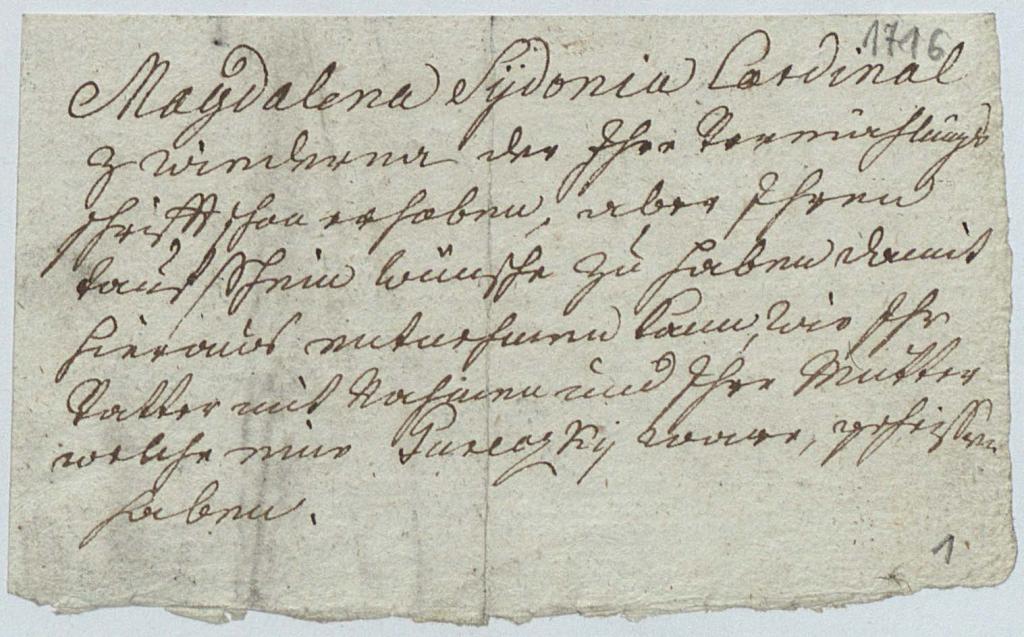 1716
Magdalena Sydonia Cardinal
der Ihre Vermählungs
schrifft schon erhoben, aber Ihren
tauf Schein wünsche zu haben damit
hieraus entnehmen kann, wie Ihr
Vatter mit Nahmen und Ihre Mutter
welche eine ware, geheissen
haben.
1